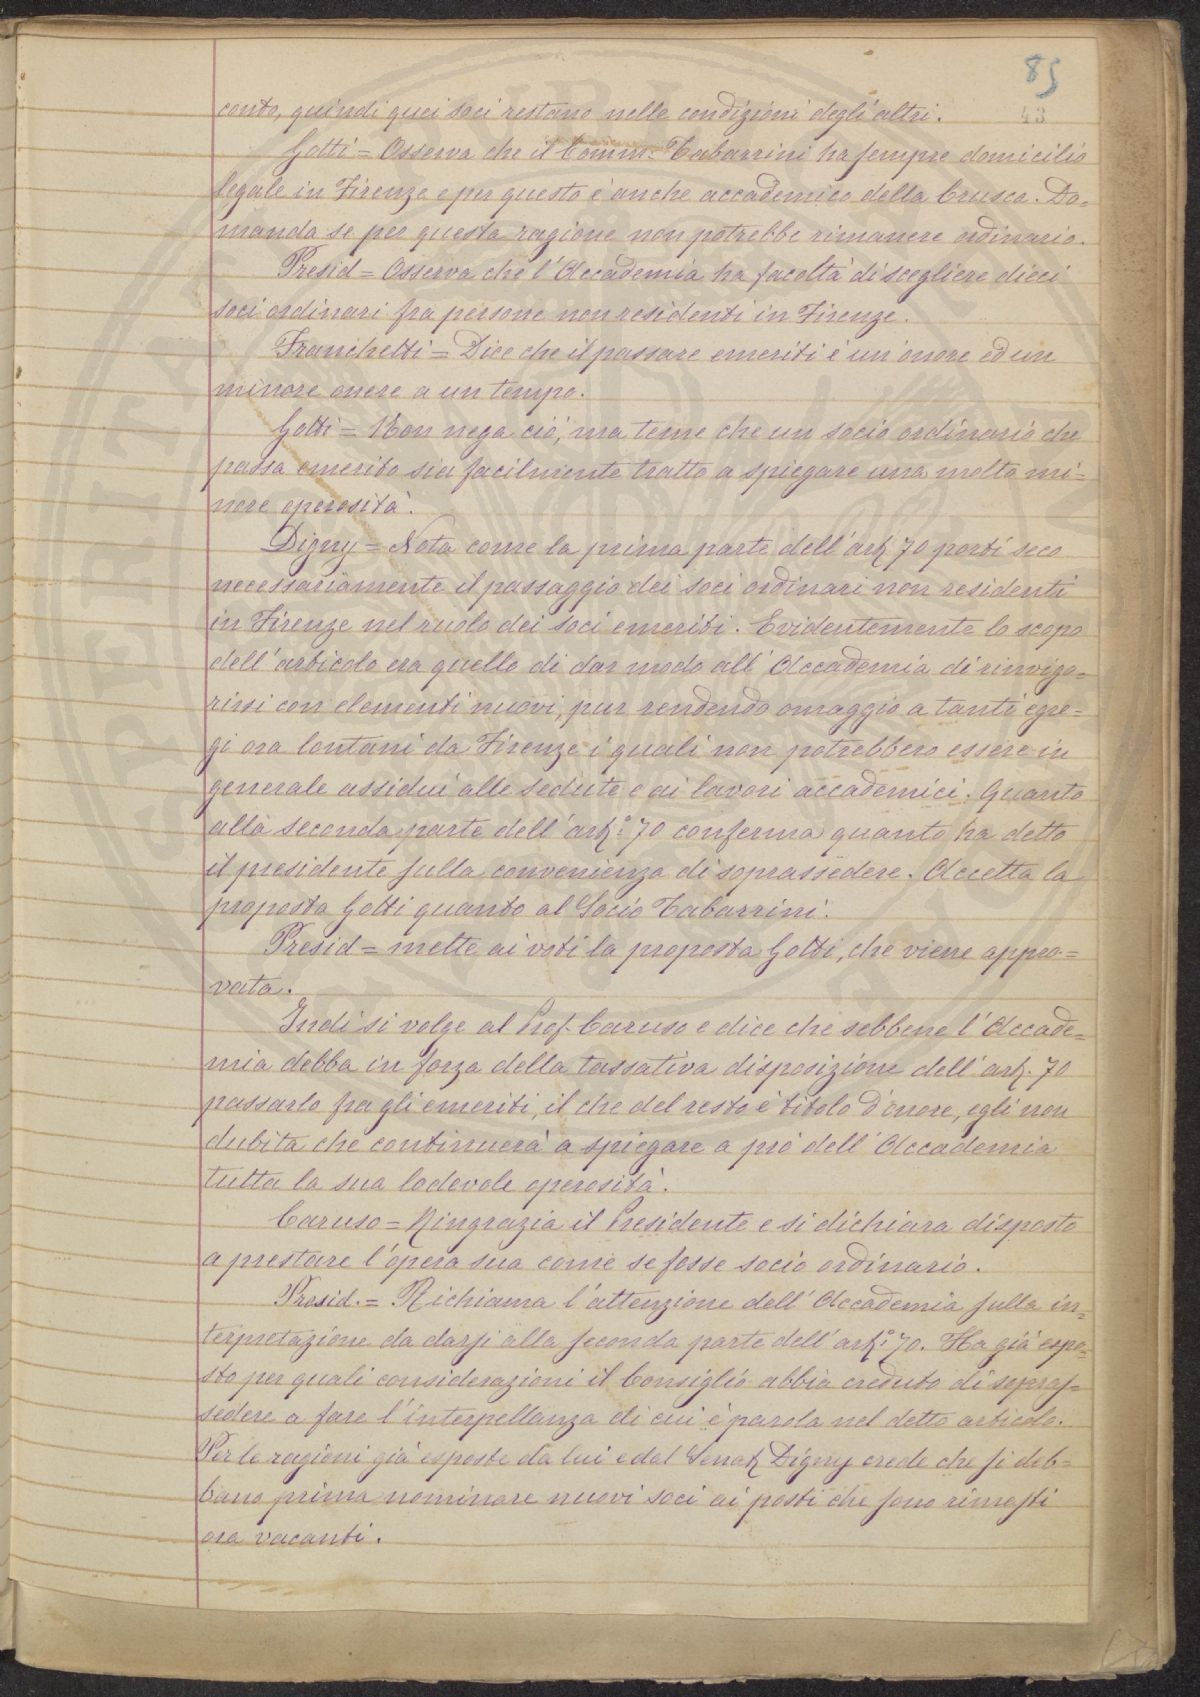 85
43
conto, quindi quei soci restano nelle condizioni degli altri.
Gotti = Osserva che il Comm. Tabarrini ha sempre domicilio
legale in Firenze e per questo è anche accademico della Crusca. Do=
manda se per questa ragione non potrebbe rimanere ordinario.
Presid = Osserva che l'Accademia ha facoltà di scegliere dieci
soci ordinari fra persone non residenti in Firenze.
Franchetti = Dice che il passare emeriti è un'onore ed un
minore onere a un tempo.
Gotti = Non nega ciò, ma teme che un socio ordinario che
passa emerito sia facilmente tratto a spiegare una molto mi=
nore operosità.
Digny = Nota come la prima parte dell'art. 70 porti seco
necessariamente il passaggio dei soci ordinari non residenti
in Firenze nel ruolo dei soci emeriti. Evidentemente lo scopo
dell'articolo era quello di dar modo all'Accademia di rinvigo=
rirsi con elementi nuovi, pur rendendo omaggio a tanti egre=
gi ora lontani da Firenze i quali non potrebbero essere in
generale assidui alle sedute e ai lavori accademici. Quanto
alla seconda parte dell'art.° 70 conferma quanto ha detto
il presidente sulla convenienza di soprassedere. Accetta la
proposta Gotti quanto al Socio Tabarrini.
Presid = mette ai voti la proposta Gotti, che viene appro=
vata.
Indi si volge al Prof. Caruso e dice che sebbene l'Accade=
mia debba in forza della tassativa disposizione dell'art. 70
passarlo fra gli emeriti, il che del resto è titolo d'onore, egli non
dubita che continuerà a spiegare a prò dell'Accademia
tutta la sua lodevole operosità.
Caruso = Ringrazia il Presidente e si dichiara disposto
a prestare l'opera sua come se fosse socio ordinario.
Presid. = Richiama l'attenzione dell'Accademia sulla in=
terpretazione da darsi alla seconda parte dell'art.° 70. Ha già espo=
sto per quali considerazioni il Consiglio abbia creduto di sopras=
sedere a fare l'interpellanza di cui è parola nel detto articolo.
Per le ragioni già esposte da lui e dal Senat. Digny crede che si deb=
bano prima nominare nuovi soci ai posti che sono rimasti
ora vacanti.